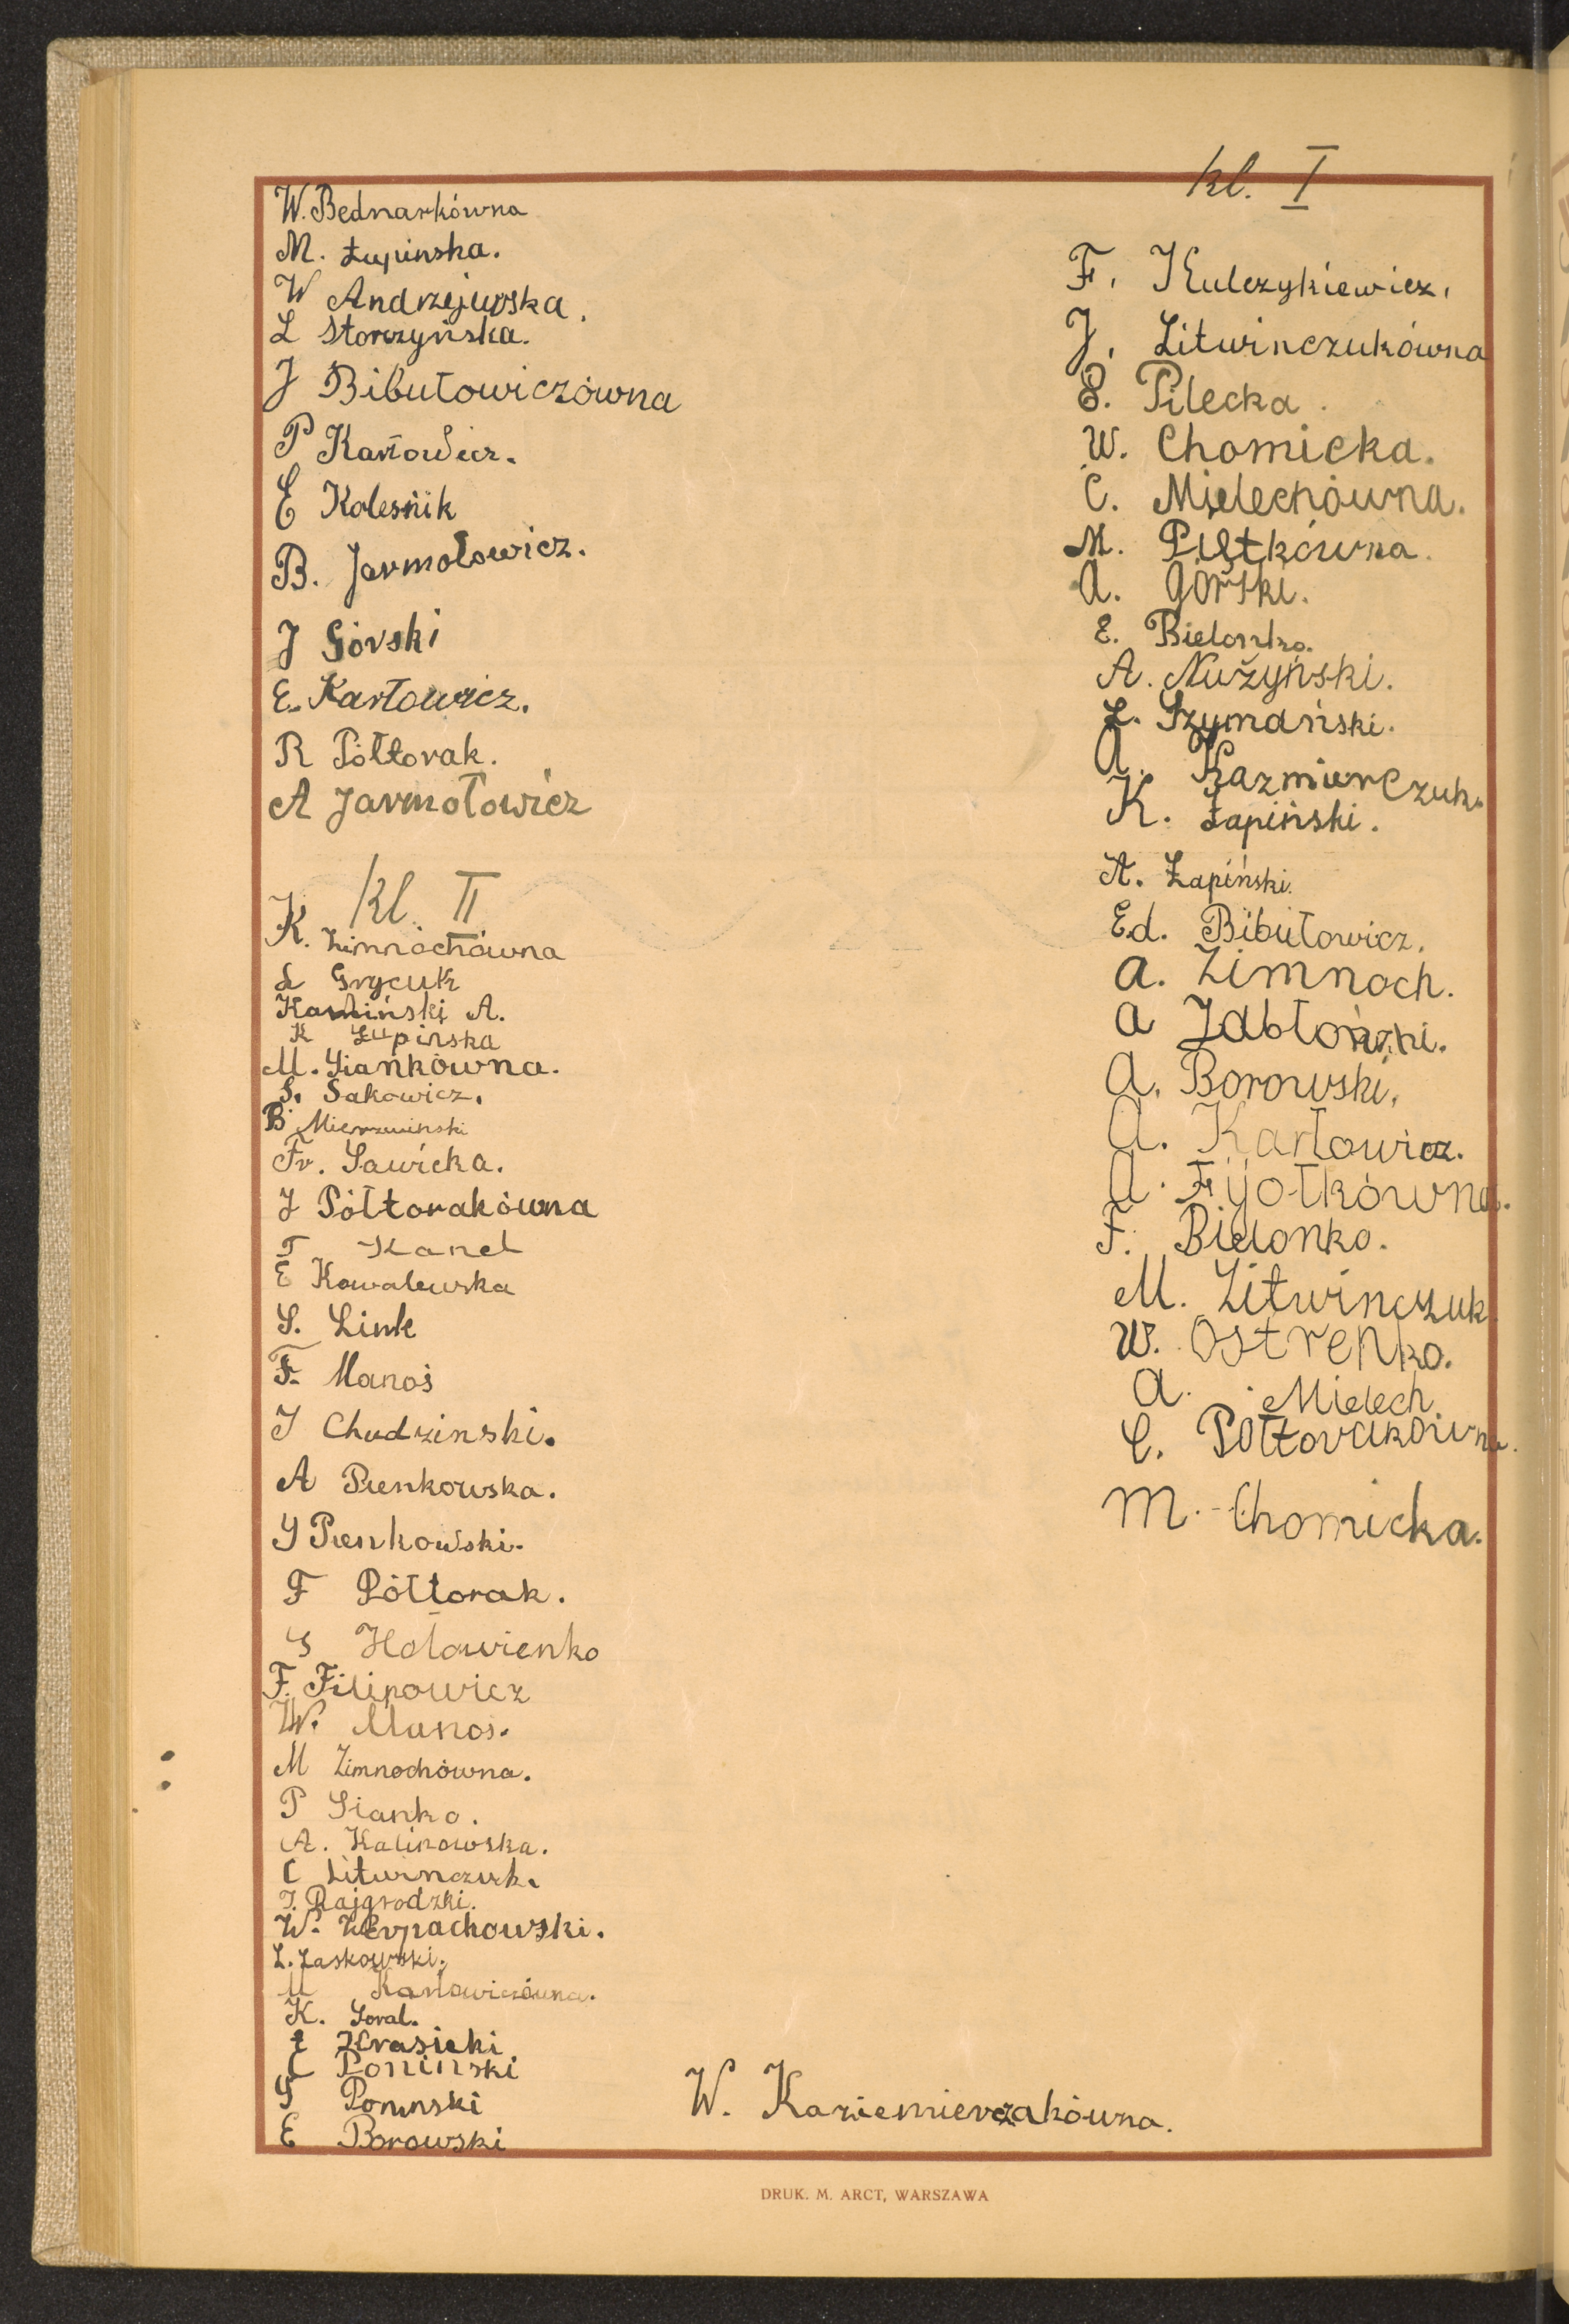 W. Bednarkówna
M. Łupinska.
W Andrzejewska.
L Storzyńska.
J Bibułowiczówna
P Karłowicz.
E Kolesnik
B. Jarmołowicz.
J Górski
E. Karłowicz.
R Półtorak.
A Jarmołowicz
kl. II
K. Zimnochówna
L Grycuk
Kamiński A.
K Łupinska
M. Siankówna.
S. Sakowicz.
B Mierzwinski
Fr. Sawicka.
J Półtorakówna
T Kanel
E Kowalewska
S. Link
F. Manoś
J Chudzinski.
A Pienkowska.
J Pienkowski.
F Półtorak.
S Hołowienko
F. Filipowicz
W. Manos.
M Zimnochówna.
P Sianko.
A. Kalinowska.
C Litwinczuk.
J. Rajgrodzki.
W. Wierpachowski.
L. Zaskowski.
M Karłowiczówna.
K. Goral.
E Krasicki
C Poninski
S Poninski
E Borowski
kl. I
F. Kulczykiewicz.
J. Litwinczukówna
E. Pilecka.
W. Chomicka.
C. Mielechówna.
M. Piętkówna.
A. Górski.
E. Bielonko.
A. Nużyński.
L. Szymański.
A. Kazmierczuk.
K. Łapiński.
A. Łapiński.
Ed. Bibułowicz.
A. Zimnoch.
A Jabłoński.
A. Borowski.
A. Karłowicz.
A. Fijołkówna.
F. Bielonko.
M. Litwinczuk
W. Ostrenko.
A. Mielech
C. Półtorakówna.
M. Chomicka.
W. Kaziemierczakówna.
DRUK. M. ARCT, WARSZAWA